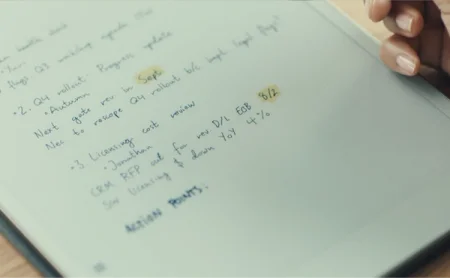 flagi Q3 workshop
• 2. Q4 rollout: Progress update
• Autumn
Next gate rev in Sept
Nee to rescope Q4 rollout b/c kept legal flags"
• 3 Licensing cost review
• Jonathan
CRM RFP out for rev D/L EOB 8/2
licensing $ down YoY 4%
ACTION POINTS.